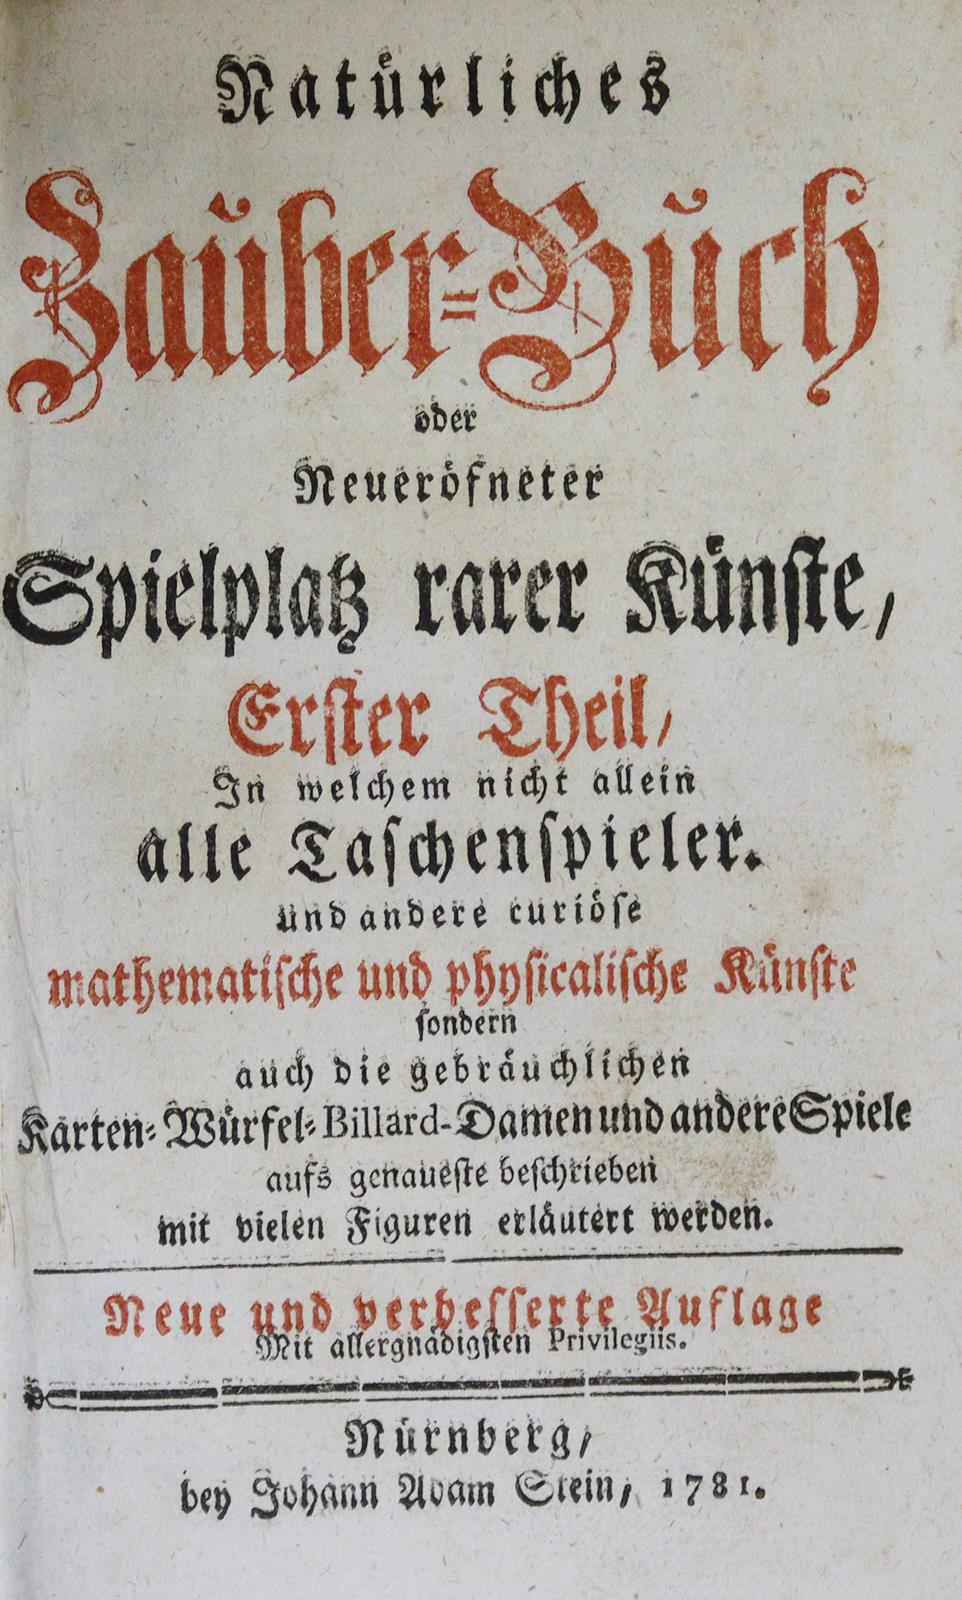 Natürliches
Zauber-Buch
oder
Neueröfneter
Spielplatz rarer Künste,
Erster Theil,
In welchem nicht allein
alle Taschenspieler.
und andere curiöse
mathematische und physicalische Künste
sondern
auch die gebräuchlichen
Karten-Würfel-Billard-Damen und andere Spiele
aufs genaueste beschrieben
mit vielen Figuren erläutert werden.
Neue und verbesserte Auflage
Mit allergnädigsten Privilegiis.
Nürnberg,
bey Johann Adam Stein, 1781.